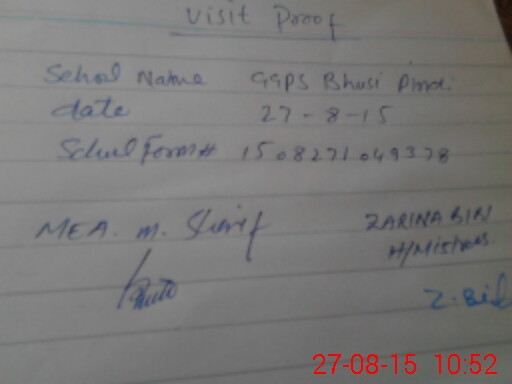 Visit Proof
School Name GGPS Bhusi Pindi
date 27-8-15
School Form# 1508271049378
MEA. m. Sharif
ZARINA BIBI
H/Mistress
Z. Bibi
27-08-15 10:52